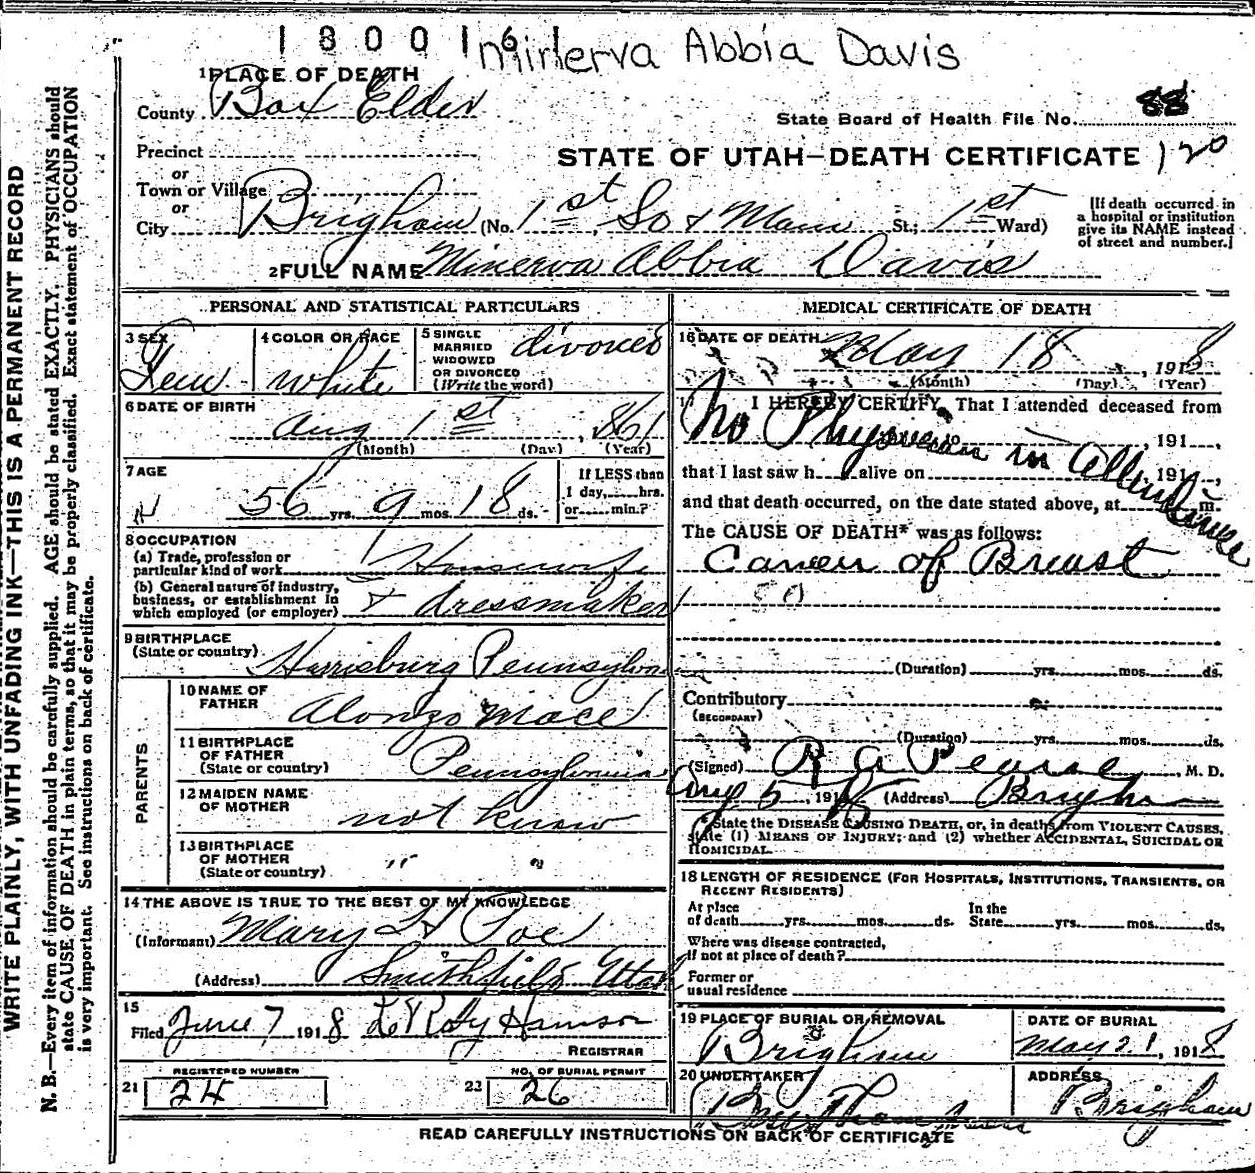 1800161 Minerva Abbia Davis
1 PLACE OF DEATH
County Box Elder
State Board of Health File No. 88
Precinct
STATE OF UTAH—DEATH CERTIFICATE 120
or
Town or Village
or
City Brigham (No. 1st So & Main St.; 1st Ward)
[If death occurred in
a hospital or institution
give its NAME instead
of street and number.]
2 FULL NAME Minerva Abbia Davis
PERSONAL AND STATISTICAL PARTICULARS
3 SEX
Fem.
4 COLOR OR RACE
white
5 SINGLE
MARRIED
WIDOWED
OR DIVORCED
(Write the word)
divorced
6 DATE OF BIRTH
Aug 1st, 1861
(Month) (Day) (Year)
7 AGE
56 yrs. 9 mos. 18 ds.
If LESS than
1 day,......hrs.
or......min.?
8 OCCUPATION
(a) Trade, profession or
particular kind of work Housewife
(b) General nature of industry,
business, or establishment in
which employed (or employer) & dressmaker
9 BIRTHPLACE
(State or country) Harrisburg Pennsylvan
PARENTS
10 NAME OF
FATHER Alonzo Mace
11 BIRTHPLACE
OF FATHER
(State or country) Pennsylvania
12 MAIDEN NAME
OF MOTHER not know
13 BIRTHPLACE
OF MOTHER
(State or country) " "
14 THE ABOVE IS TRUE TO THE BEST OF MY KNOWLEDGE
(Informant) Mary H Poe
(Address) Smithfield Utah
15
Filed June 7 1918 LeRoy Hamson
REGISTRAR
REGISTERED NUMBER
21 24
NO. OF BURIAL PERMIT
22 26
MEDICAL CERTIFICATE OF DEATH
16 DATE OF DEATH May 18, 1918
(Month) (Day) (Year)
17 I HEREBY CERTIFY, That I attended deceased from
191..., to 191...,
No Physician in Attendance
that I last saw h... alive on 191...,
and that death occurred, on the date stated above, at m.
The CAUSE OF DEATH* was as follows:
Cancer of Breast
(Duration) yrs. mos. ds.
Contributory
(SECONDARY)
(Duration) yrs. mos. ds.
(Signed) R A Pearse, M. D.
Aug 5, 1918 (Address) Brigham
*State the DISEASE CAUSING DEATH, or, in deaths from VIOLENT CAUSES,
state (1) MEANS OF INJURY; and (2) whether ACCIDENTAL, SUICIDAL OR
HOMICIDAL.
18 LENGTH OF RESIDENCE (FOR HOSPITALS, INSTITUTIONS, TRANSIENTS, OR
RECENT RESIDENTS)
At place
of death yrs. mos. ds.
In the
State yrs. mos. ds.
Where was disease contracted,
if not at place of death?
Former or
usual residence
19 PLACE OF BURIAL OR REMOVAL
Brigham
DATE OF BURIAL
May 21, 1918
20 UNDERTAKER
ADDRESS
Brigham
READ CAREFULLY INSTRUCTIONS ON BACK OF CERTIFICATE
WRITE PLAINLY, WITH UNFADING INK—THIS IS A PERMANENT RECORD
N. B.—Every item of information should be carefully supplied. AGE should be stated EXACTLY. PHYSICIANS should
state CAUSE OF DEATH in plain terms, so that it may be properly classified. Exact statement of OCCUPATION
is very important. See instructions on back of certificate.